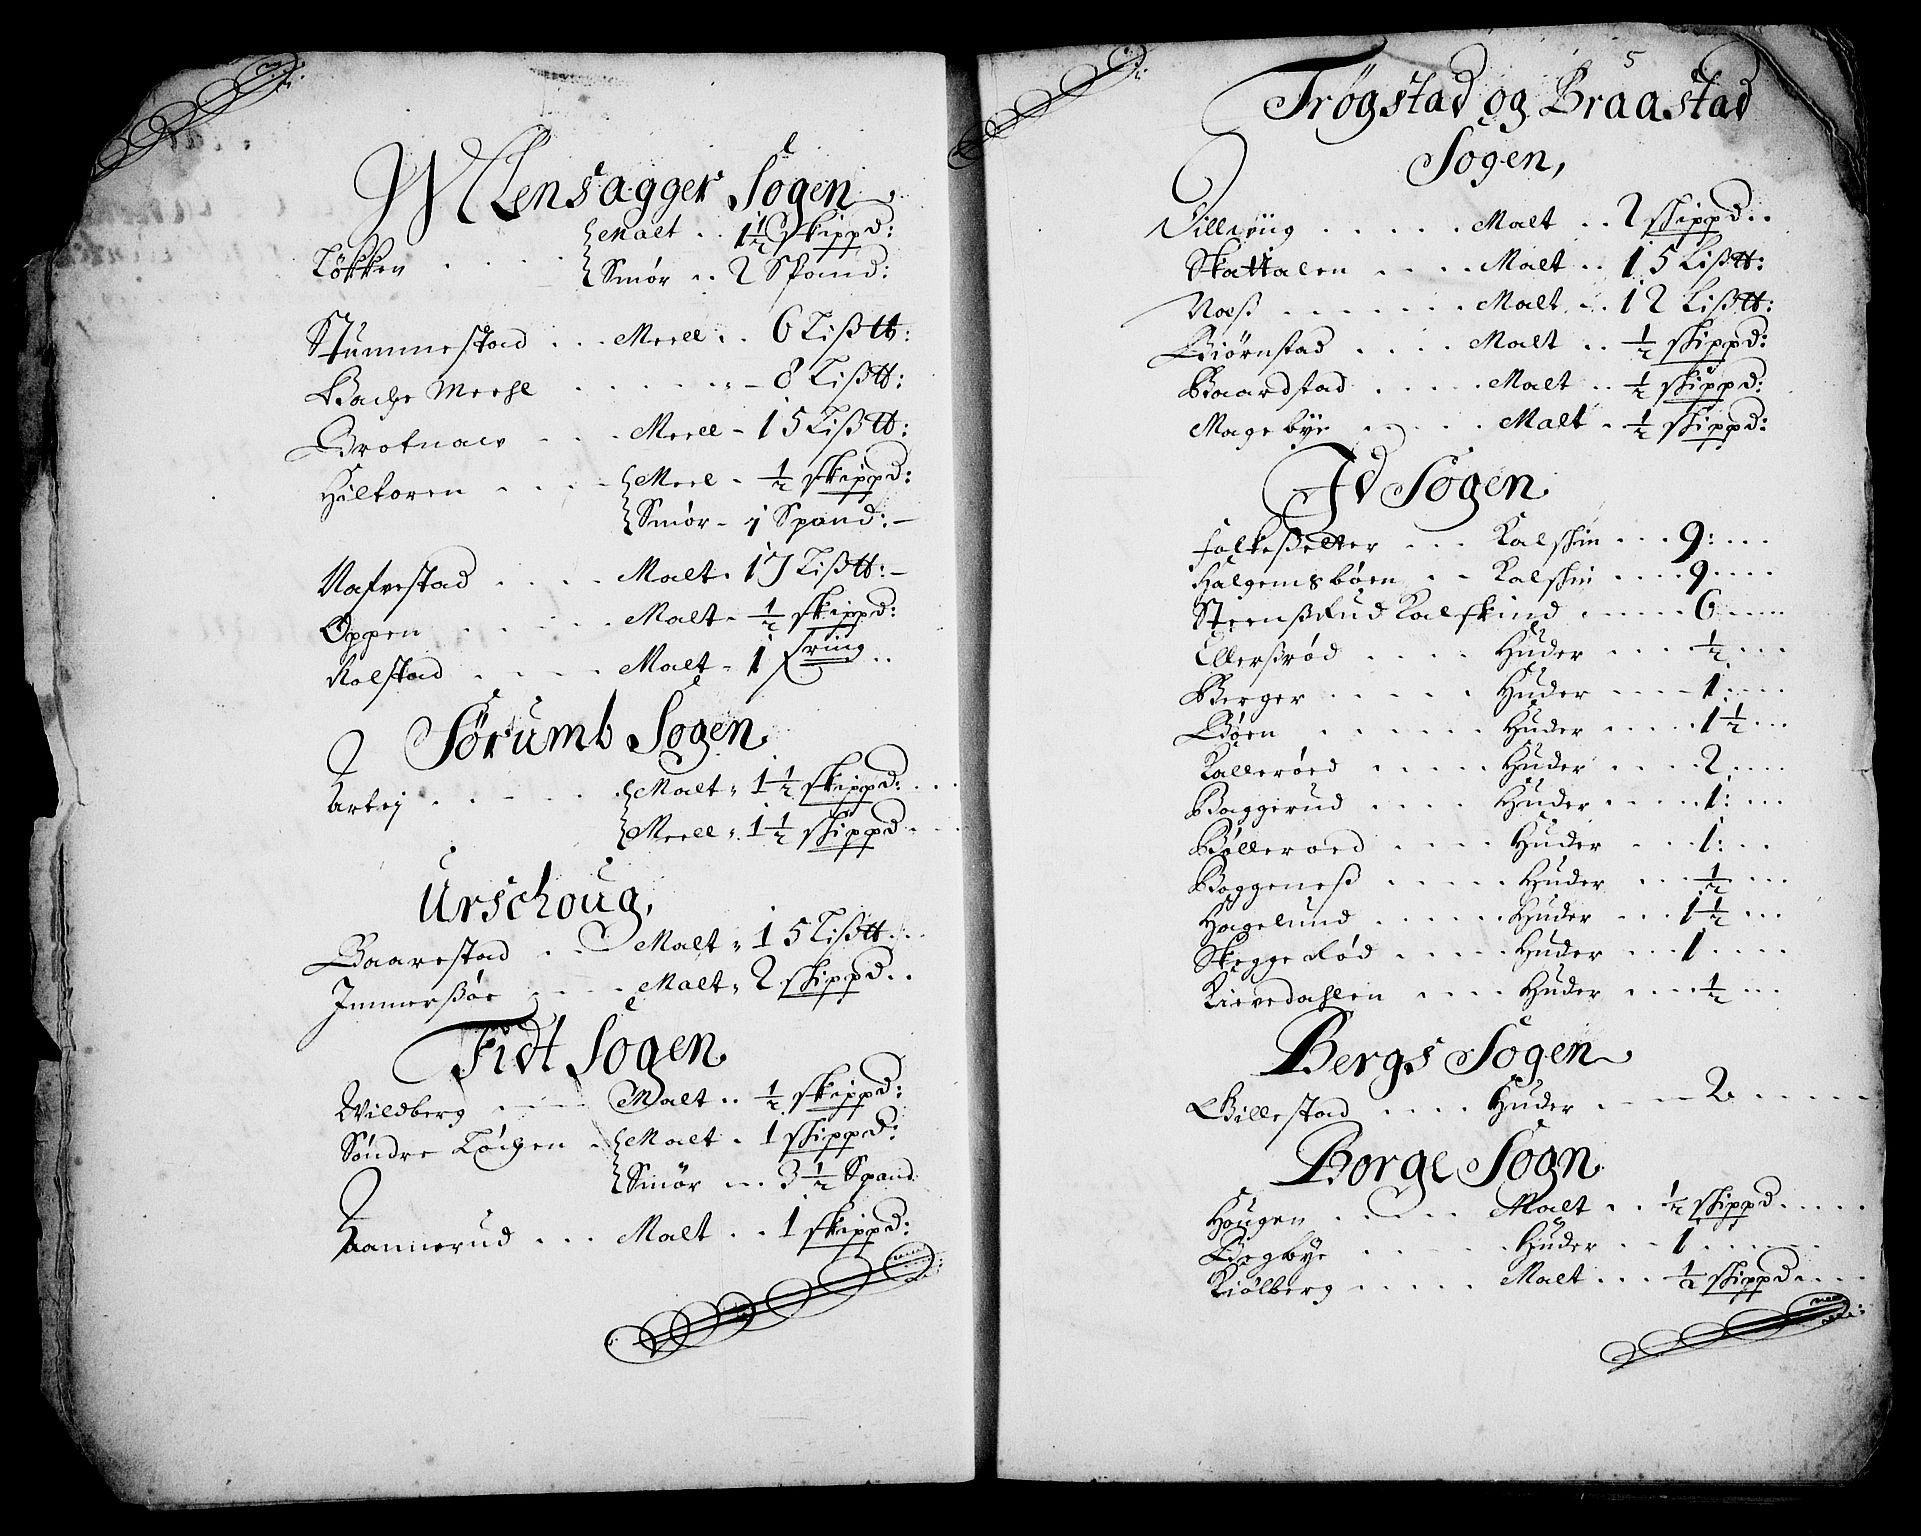 Ullensagger Sogen
Løkken . . . . . Malt . . 1½ Skippd:
Smør . . 2 Spand:
Stummestad . . . Meell . . 6 Lißtt:
Bache Meehl . . . . . . 8 Lißtt:
Brotnaev . . . Meell - 15 Lißtt:
Hiltoren . . . . Meel - ½ skippd:
Smør - 1 Spand:
Nafvestad . . . . Malt . 17 Lißtt:
Oppen . . . . . Malt - ½ skippd:
Rolstad . . . . . Malt - 1 fring . .
Sørumb Sogen
Artej . . . . . Malt 1½ skippd: . . .
Meell 1½ skippd . . .
Urschoug,
Baarestad . . . Malt 15 Lißtt . . .
Jmmerßøe . . . Malt 2 skippd . .
Fidt Sogen
Wildberg . . . . Malt . . ½ skippd:
Søndre Tøigen . Malt . 1 skippd:
Smør . . . 3½ Spand
Hannerud . . . Malt . . 1 skippd:
5
Trøgstad og Braastad
Sogen,
. . . . . Malt . . 2 skippd . .
Skattalen . . . . Malt . . 15 Lißtt:
Noeß . . . . . . . Malt . . 12 Lißtt:
Biørnstad . . . . Malt . . ½ skippd:
Baardstad . . . . Malt . . ½ skippd:
Magebye . . . . . Malt . ½ skippd:
Jd Sogen
Folkeßetter . . . Kalskin . . . 9: . . .
Halgemsbøen . . Kalskin . . . . 9 . . . .
Steenßrud Kalfskind . . . . . 6 . . . .
Ellerßrød . . . . Huder . . . . ½ . . .
Berger . . . . . Huder . . . . 1: . . .
Bøen . . . . . . Huder . . . . 1½ . . .
Kallerøed . . . . . Huder . . . . 2 . . . .
Baggerud . . . . Huder . . . . . 1: . . .
Bøllerøed . . . . Huder . . . 1: . . .
Boggeneß . . . . . Huder . . . ½ . . .
Hagelund . . . . . Huder . . . 1½ . . .
Skeggerød . . . . . Huder . . . 1 . . . .
Kievedahlen . . . . Huder . . . . ½ . . .
Bergs Sogen
Billestad . . . . Huder . . . . 2 . . . . .
Borge Sogn
Hougen . . . . . Malt . . ½ skippd . . . . .
Begbye . . . . . . Huder . . 1 . . . . . .
Kiølberg . . . . . Malt . . . ½ skippd . . . .